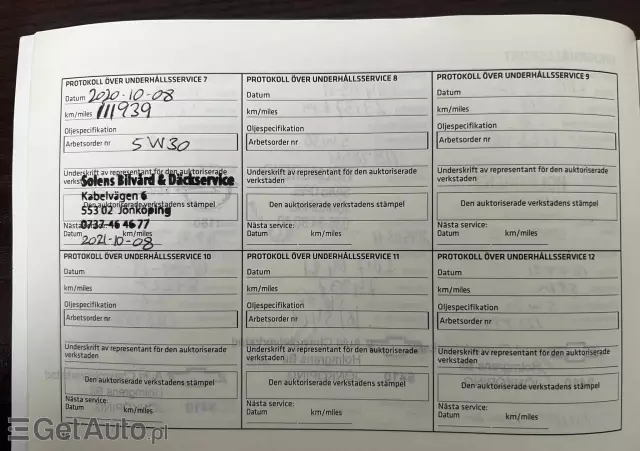 PROTOKOLL ÖVER UNDERHÅLLSSERVICE 7
Datum 2020-10-08
km/miles 111939
Oljespecifikation
Arbetsorder nr 5W30
Underskrift av representant för den auktoriserade
verkstaden
Solens Bilvård & Däckservice
Den auktoriserade verkstadens stämpel
Kabelvägen 6
553 02 Jönköping
0737-46 46 77
Nästa service:
Datum km/miles
2021-10-08
PROTOKOLL ÖVER UNDERHÅLLSSERVICE 8
Datum
km/miles
Oljespecifikation
Arbetsorder nr
Underskrift av representant för den auktoriserade
verkstaden
Den auktoriserade verkstadens stämpel
Nästa service:
Datum km/miles
PROTOKOLL ÖVER UNDERHÅLLSSERVICE 9
Datum
km/miles
Oljespecifikation
Arbetsorder nr
Underskrift av representant för den auktoriserade
verkstaden
Den auktoriserade verkstadens stämpel
Nästa service:
Datum km/miles
PROTOKOLL ÖVER UNDERHÅLLSSERVICE 10
Datum
km/miles
Oljespecifikation
Arbetsorder nr
Underskrift av representant för den auktoriserade
verkstaden
Den auktoriserade verkstadens stämpel
Nästa service:
Datum km/miles
PROTOKOLL ÖVER UNDERHÅLLSSERVICE 11
Datum
km/miles
Oljespecifikation
Arbetsorder nr
Underskrift av representant för den auktoriserade
verkstaden
Den auktoriserade verkstadens stämpel
Nästa service:
Datum km/miles
PROTOKOLL ÖVER UNDERHÅLLSSERVICE 12
Datum
km/miles
Oljespecifikation
Arbetsorder nr
Underskrift av representant för den auktoriserade
verkstaden
Den auktoriserade verkstadens stämpel
Nästa service:
Datum km/miles
EGetAuto.pl